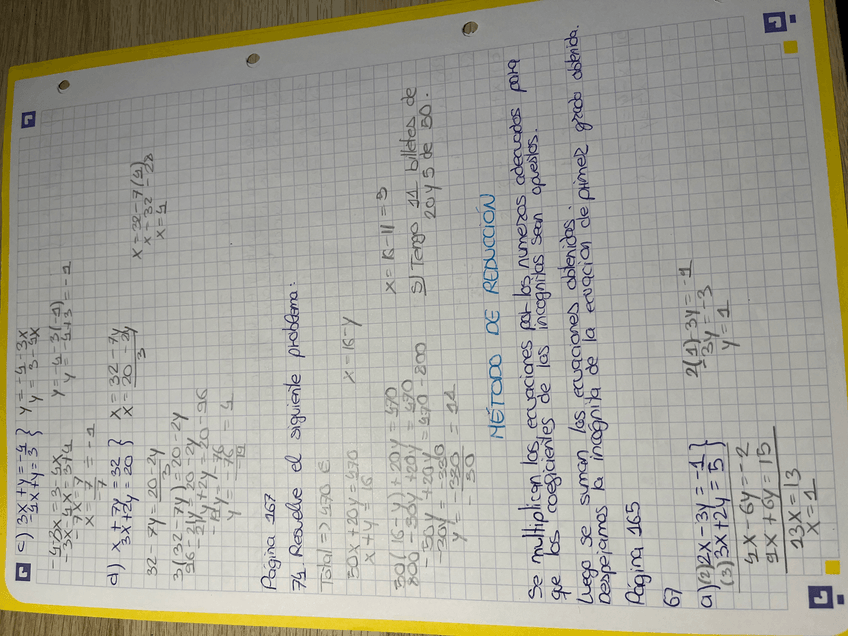 c) 3x + y = -1 } y = -4 - 3x
-4x + y = 3 } y = 3 - 4x
-4-3x = 3-4x
-3x 4x = 3+4
-7x = 7
x = 7/-7 = -1
y = -4 - 3(-1)
y = -4+3 = -1
d) x + 7y = 32 } x = 32 - 7y
3x + 2y = 20 } x = 20 - 2y / 3
32 - 7y = 20-2y / 3
3(32-7y) = 20-2y
96 - 21y = 20-2y
-21y + 2y = 20-96
-19y = -76
y = -76/-19 = 4
x = 32 - 7(4)
x = 32 - 28
x = 4
Página 167
74. Resuelve el siguiente problema:
Total => 470 €
50x + 20y = 470
x + y = 16
x = 16-y
50(16-y) + 20y = 470
800 - 50y + 20y = 470
-50y + 20y = 470-800
-30y = -330
y = -330/-30 = 11
x = 16-11 = 5
S) Tengo 11 billetes de
20 y 5 de 50.
MÉTODO DE REDUCCIÓN
Se multiplican las ecuaciones por los numeros adecuados para
que los coeficientes de las incognitas sean opuestos.
Luego se suman las ecuaciones obtenidas.
Despejamos la incógnita de la ecuacion de primer grado obtenida.
Página 165
67
a) (2) 2x - 3y = -1 }
(3) 3x + 2y = 5 }
4x - 6y = -2
9x + 6y = 15
13x = 13
x = 1
2(1) 3y = -1
3y = -3
y = 1